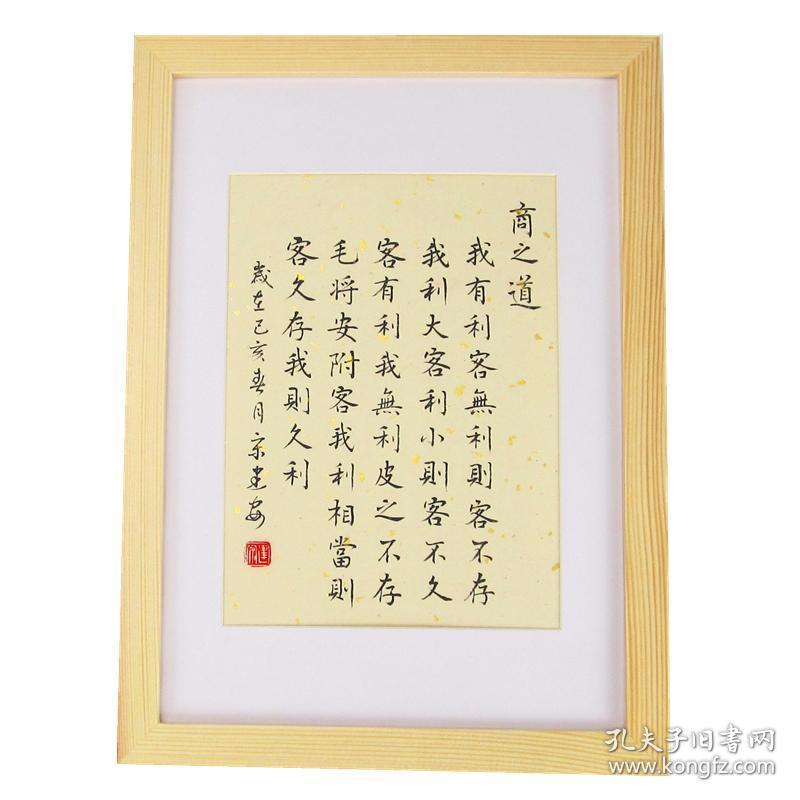 商之道
我有利客無利則客不存
我利大客利小則客不久
客有利我無利皮之不存
毛将安附客我利相當則
客久存我則久利
歲在己亥春月宗建安
孔夫子旧书网
www.kongfz.com